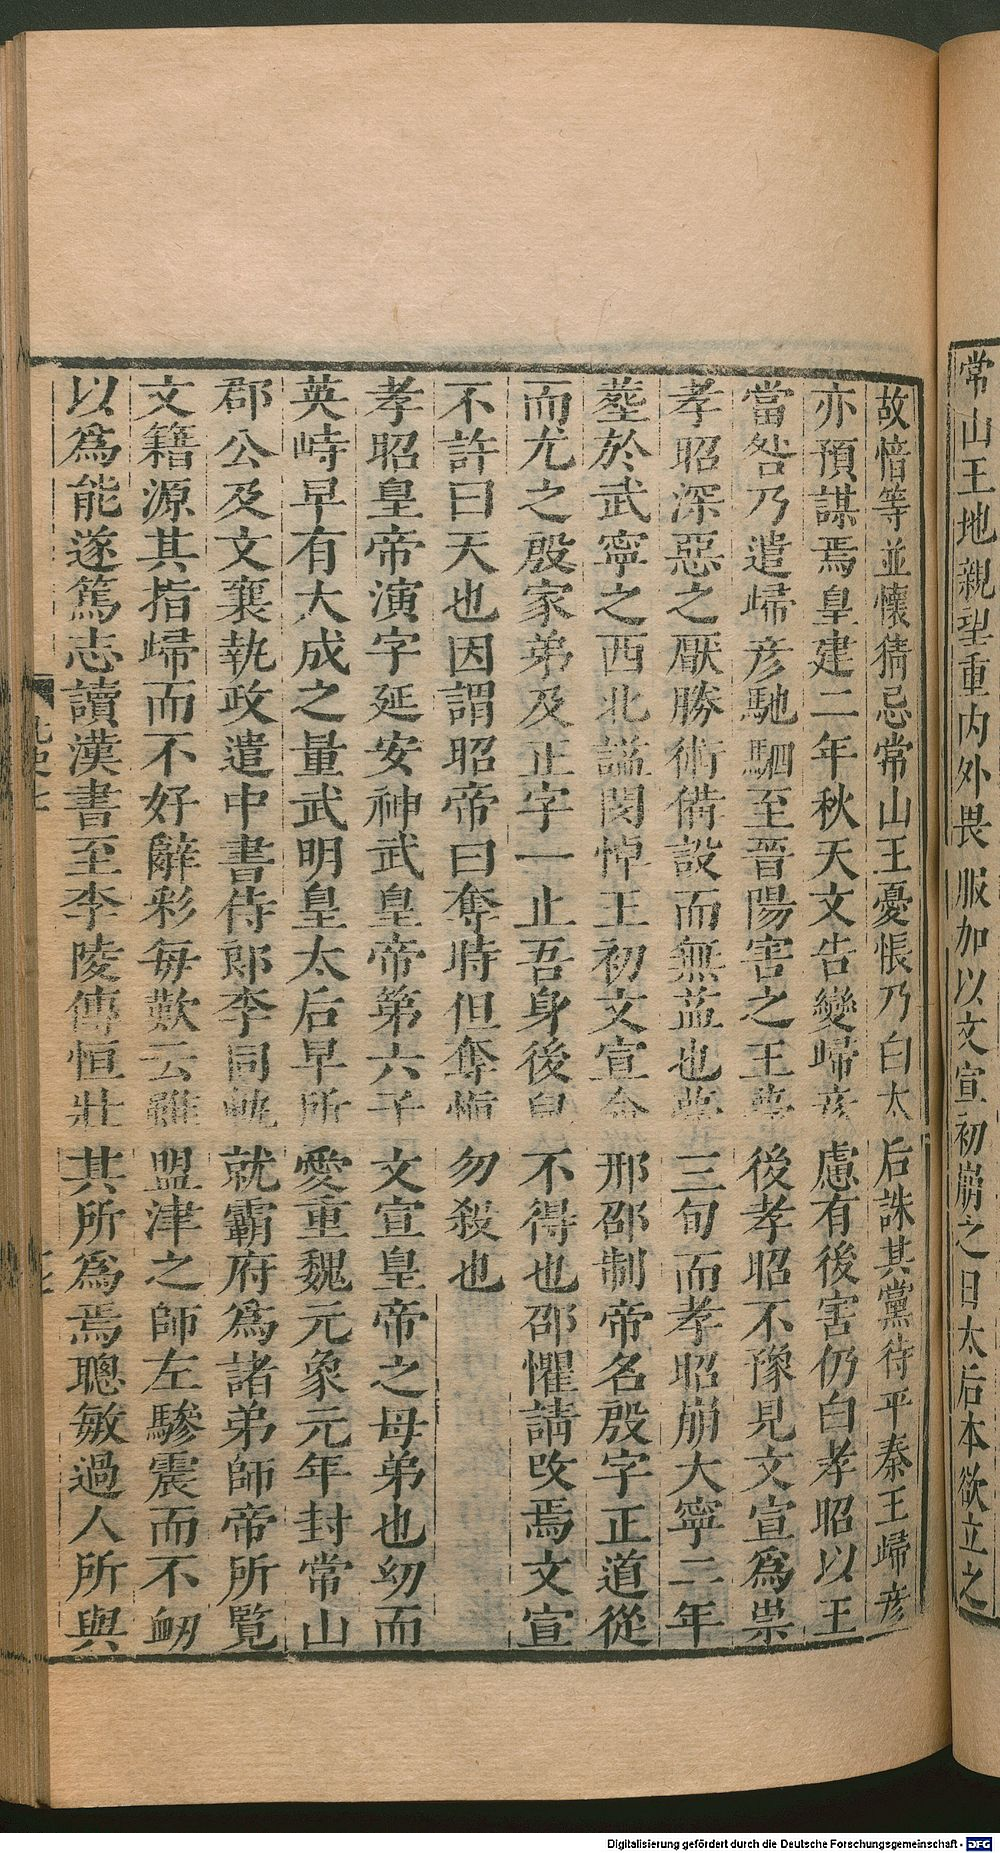 常山王地親望重内外畏服加以文宣初崩之日太后本欲立之
故愔等並懷猜忌常山王憂悵乃白太后誅其黨待平秦王歸彥
亦預謀焉皇建二年秋天文告變歸彥慮有後害仍白孝昭以王
當咎乃遣歸彥馳駟至晉陽害之王薨後孝昭不豫見文宣爲祟
孝昭深惡之厭勝術備設而無益也薨三旬而孝昭崩大寧二年
葬於武寧之西北謚閔悼王初文宣命邢邵制帝名殷字正道從
而尤之殷家弟及正字一止吾身後兒不得也邵懼請改焉文宣
不許曰天也因謂昭帝曰奪時但奪愼勿殺也
孝昭皇帝演字延安神武皇帝第六子文宣皇帝之母弟也幼而
英峙早有大成之量武明皇太后早所愛重魏元象元年封常山
郡公及文襄執政遣中書侍郎李同軌就霸府爲諸弟師帝所覽
文籍源其指歸而不好辭彩每歎云雖盟津之師左驂震而不衂
以爲能遂篤志讀漢書至李陵傳恒壯其所爲焉聰敏過人所與
Digitalisierung gefördert durch die Deutsche Forschungsgemeinschaft - DFG